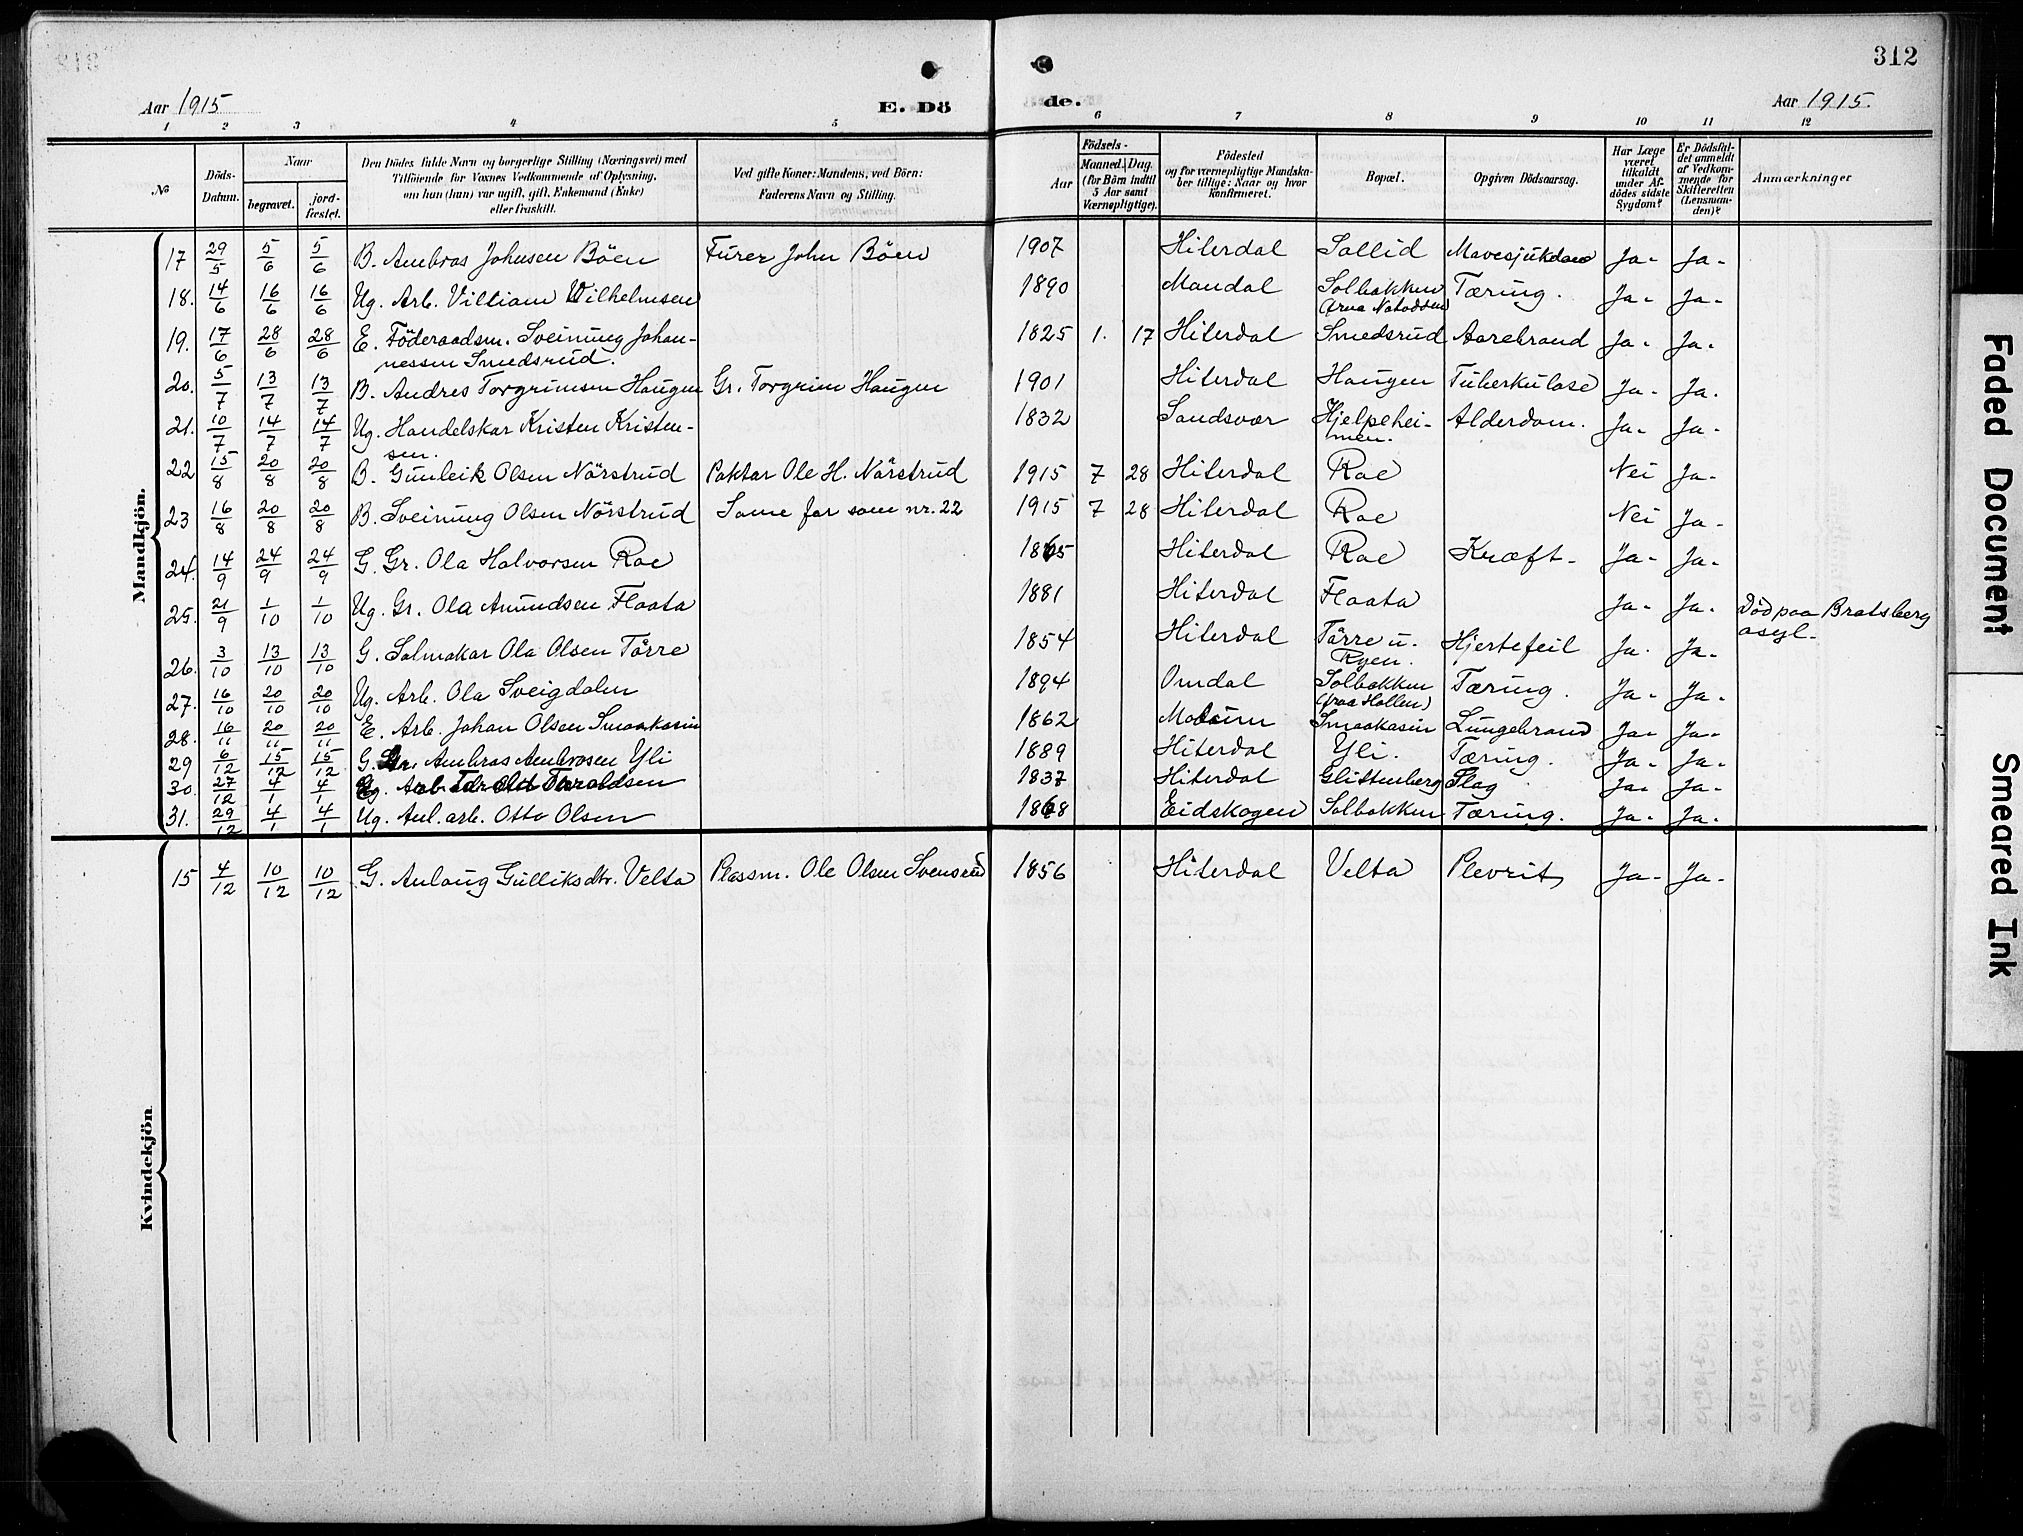 312
Aar 1915
E. Dö
de.
Aar 1915.
1 2 3 4 5 6 7 8 9 10 11 12
No
Döds-Datum.
Naar
begravet.
jord-fæstet.
Den Dödes fulde Navn og borgerlige Stilling (Næringsvei) med
Tilföiende for Voxnes Vedkommende af Oplysning,
om hun (han) var ugift, gift, Enkemand (Enke)
eller fraskilt.
Ved gifte Koner: Mandens, ved Börn:
Faderens Navn og Stilling.
Födsels-
Aar
Maaned. Dag.
(for Börn indtil
5 Aar samt
Værnepligtige).
Födested
og for værnepligtige Mandska-
ber tillige: Naar og hvor
konfirmeret.
Bopæl.
Opgiven Dödsaarsag.
Har Læge
været
tilkaldt
under Af-
dödes sidste
Sygdom?
Er Dödsfal-
det anmeldt
af Vedkom-
mende for
Skifteretten
(Lensman-
den)?
Anmærkninger
Mandkjön.
17 29/5 5/6 5/6 B. Ambros Johnsen Böen Furer John Böen 1907 Hiterdal Sollid Mavesjukdom Ja- Ja-
18. 14/6 16/6 16/6 Ug. Arb. Villiam Wilhelmsen 1890 Mandal Solbakken (fraa Notodden) Tæring. Ja- Ja-
19. 17/6 28/6 28/6 E. Föderaadsm. Sveinung Johan-
nessen Smedsrud. 1825 1. 17 Hiterdal Smedsrud Aarebrand Ja- Ja-
20. 5/7 13/7 13/7 B. Andres Torgrimsen Haugen Gr. Torgrim Haugen 1901 Hiterdal Haugen Tuberkulose Ja- Ja.
21. 10/7 14/7 14/7 Ug. Handelskar Kristen Kristen-
sen. 1832 Sandsvær Hjelpehei-
men. Alderdom. Ja- Ja-
22 15/8 20/8 20/8 B. Gunleik Olsen Nörstrud Paktar Ole H. Nörstrud 1915 7 28 Hiterdal Roe Nei Ja-
23 16/8 20/8 20/8 B. Sveinung Olsen Nörstrud Same far som nr. 22 1915 7 28 Hiterdal Roe Nei Ja-
24. 14/9 24/9 24/9 G. Gr. Ola Halvorsen Roe 1865 Hiterdal Roe Kræft- Ja- Ja-
25. 21/9 1/10 1/10 Ug. Gr. Ola Amundsen Flaata 1881 Hiterdal Flaata Ja- Ja- Död paa Bratsberg
asyl-
26. 3/10 13/10 13/10 G. Salmakar Ola Olsen Törre 1854 Hiterdal Törre u.
Ryen. Hjertefeil Ja. Ja-
27. 16/10 20/10 20/10 Ug. Arb. Ola Sveigdalen 1894 Omdal Solbakken
(fraa Hollen) Tæring. Ja- Ja-
28. 16/11 20/11 20/11 E. Arb. Johan Olsen Smaakasin 1862 Modum Smaakasin Lungebrand Ja- Ja-
29 6/12 15/12 15/12 G. Gr. Ambros Ambrosen Yli 1889 Hiterdal Yli. Tæring. Ja- Ja-
30. 27/12 4/1 4/1 Taraldsen 1837 Hiterdal Glittenberg Slag Ja- Ja-
31. 29/12 4/1 4/1 Ug. Anl. arb. Otto Olsen 1868 Eidskogen Solbakken Tæring. Ja- Ja-
Kvindekjön
15 4/12 10/12 10/12 G. Anlaug Gulliksdtr. Velta Plassm. Ole Olsen Svensrud 1856 Hiterdal Velta Plevrit Ja- Ja-
Faded Document
Smeared Ink